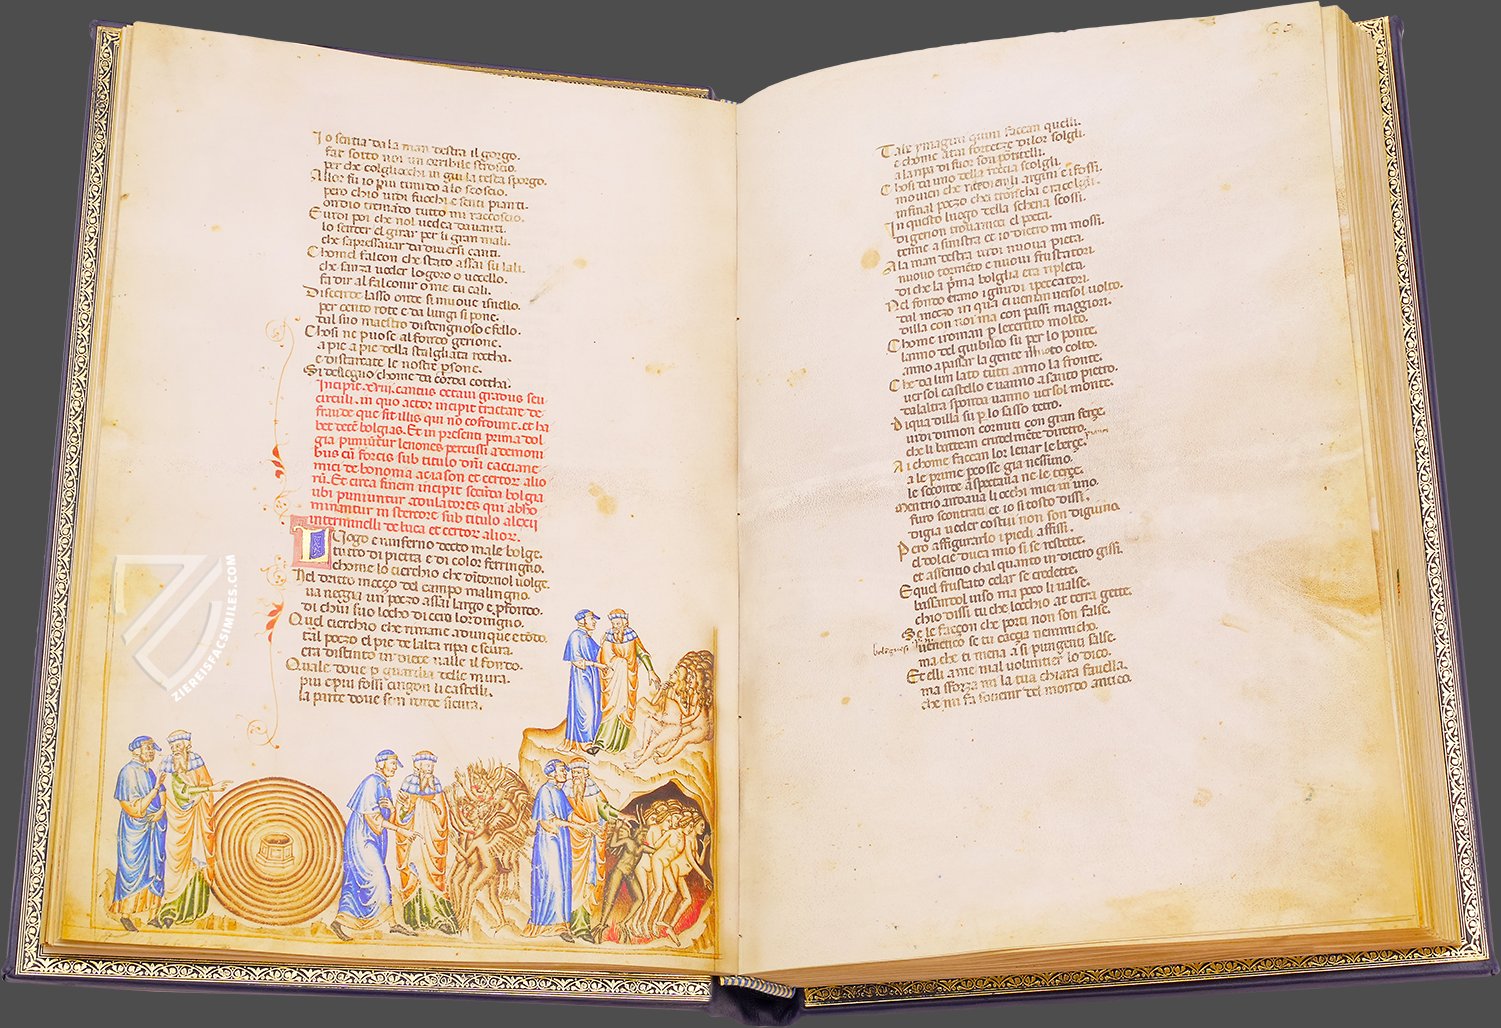 Io sentia da la man destra il gorgo.
far sotto noi un orribile stroscio.
per che cogliocchi in giu la testa sporgo.
Allor fu io piu timido alo scoscio.
pero chio uidi fuochi e senti pianti.
ondio tremando tutto mi raccoscio.
E uidi poi che nol uedea dauanti.
lo scender el girar per li gran mali.
che sapressauar da diuersi canti.
Chomel falcon che stato assai su lali.
che sanza ueder logoro o uccello.
fa dir al falconir ome tu cali.
Discende lasso onde si muoue isnello.
per cento rote e da lungi si pone.
dal suo maestro disdegnoso e fello.
Chosi ne puose al fondo gerione.
a pie a pie della stagliata roccha.
e discarcate le nostre psone.
Si dileguo chome da corda coccha.
Incipit .xviii. cantus octaui gradus seu
circuli. in quo actor incipit tractare de
fraude que fit illis qui no cofidunt. et ha
bet decē bolgias. Et in presenti prima bol
gia puniūtur lenones percussi a demoni
bus cū forcis sub titulo dni cacciane
mici de bononia ac iason et certor alio
rū. Et circa finem incipit secūda bolgia
ubi puniuntur adulatores qui abho
minantur in stercore sub titulo alexii
interminelli de luca et certor alior.
Luogo e ninferno decto male bolge.
tutto di pietra e di color ferringno.
chome lo cierchio che dītornol uolge.
Nel dritto meçço del campo malingno.
ua neggia un poçço assai largo e pfondo.
di chui suo locho dicera lordingno.
Quel cierchio che rimane adunque e tōdo.
tral poçço el pie de lalta ripa e dura.
era distinto in diece ualle il fondo.
Quale doue p guardia delle mura.
piu e piu fossi cingon li castelli.
la parte doue son rende sicura.
ZIEREISFACSIMILES.COM
Tale ymagini quiui facean quelli.
e chome a tai fortezze da lor sogli.
a la ripa di fuor son ponticelli.
Chosi da imo della roccia scolgli.
mouien che ricidieno li argini e i fossi.
infinal poçço che i tronca e racolgli.
In questo luogo della schena scossi.
di gerion trouamoci el poeta.
tenne a sinistra et io dietro mi mossi.
A la man destra uidi nuoua pieta.
nuouo tormēto e nuoui frustatori.
di che la pma bolgia era ripleta.
Nel fondo erano ignudi i peccatori.
dal mezzo in qua ci uenian uersol uolto.
di la con noi ma con passi maggiori.
Chome i roman p lexercito molto.
lanno del giubileo su per lo ponte.
anno a passar la gente modo colto.
Che da lun lato tutti anno la fronte.
uersol castello e uanno a santo pietro.
da laltra sponda uanno uersol monte.
Di qua di la su p lo sasso tetro.
uidi dimon cornuti con gran ferze.
che li battean crudelmēte dirietro.
Ai chome facean lor leuar le berze.
a le prime pcosse gia nessuno.
le seconde aspettaua ne le terze.
Mentrio andaua li occhi miei in uno.
furo scontrati et io si tosto dissi.
di gia ueder costui non son digiuno.
Pero affigurarlo i piedi affissi.
el dolcie duca mio si se restette.
et assentio chal quanto in dietro gissi.
E quel frustato celar se credette.
bassandol uiso ma poco li ualse.
chio dissi tu che locchio a terra gette.
Se le façcon che porti non son false.
uenetico se tu caccia nemicho.
ma che ti mena a si pungenti salse.
Et elli a me mal uolontier lo dico.
ma sforza mi la tua chiara fauella.
che mi fa souenir del mondo antico.